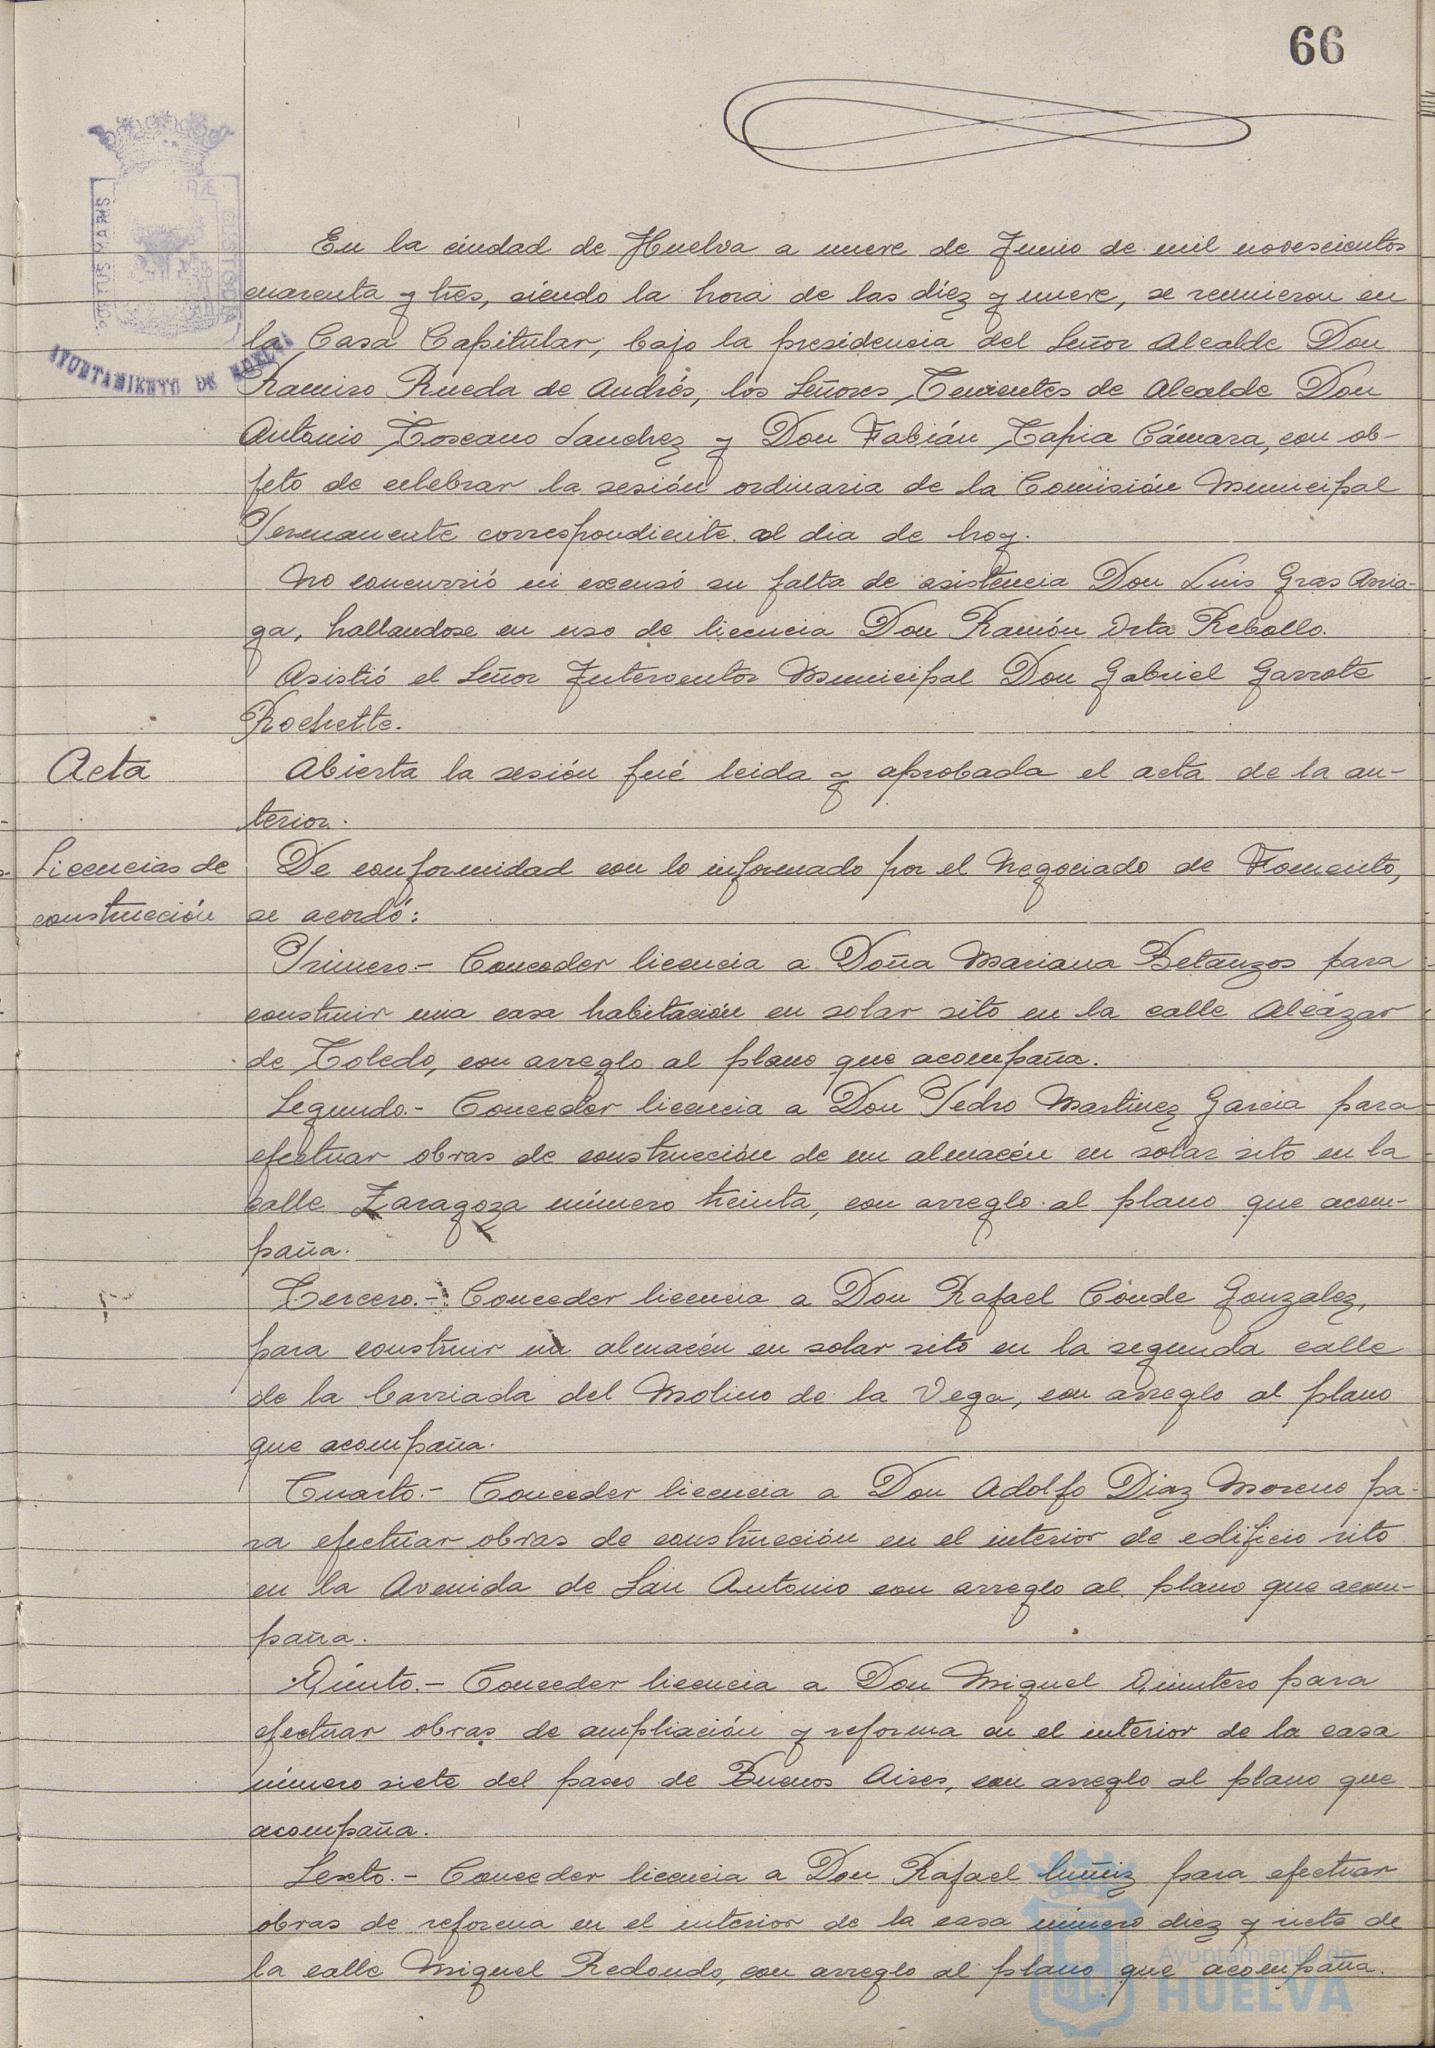 66
PORTUS MARIS
CUSTODIA
AYUNTAMIENTO DE HUELVA
En la ciudad de Huelva a nueve de Junio de mil novescientos
cuarenta y tres, siendo la hora de las diez y nueve, se reunieron en
la Casa Capitular, bajo la presidencia del Señor Alcalde Don
Ramiro Rueda de Andrés, los Señores Tenientes de Alcalde Don
Antonio Toscano Sanchez y Don Fabián Tapia Cámara, con ob-
jeto de celebrar la sesión ordinaria de la Comisión Municipal
Permanente correspondiente al dia de hoy.
No concurrió ni excusó su falta de asistencia Don Luis Gras Arria-
ga, hallandose en uso de licencia Don Ramón Orta Rebollo.
Asistió el Señor Interventor Municipal Don Gabriel Garrote
Rochette.
Acta
Abierta la sesión fué leida y aprobada el acta de la an-
terior.
Licencias de
construcción
De conformidad con lo informado por el Negociado de Fomento,
se acordó:
Primero.- Conceder licencia a Doña Mariana Betanzos para
construir una casa habitación en solar sito en la calle Alcázar
de Toledo, con arreglo al plano que acompaña.
Segundo.- Conceder licencia a Don Pedro Martinez Garcia para
efectuar obras de construcción de un almacén en solar sito en la
calle Zaragoza número treinta, con arreglo al plano que acom-
paña.
Tercero.- Conceder licencia a Don Rafael Cónde Gonzalez,
para construir un almacén en solar sito en la segunda calle
de la barriada del Molino de la Vega, con arreglo al plano
que acompaña.
Cuarto.- Conceder licencia a Don Adolfo Diaz Moreno pa-
ra efectuar obras de construcción en el interior de edificio sito
en la Avenida de San Antonio con arreglo al plano que acom-
paña.
Qúinto.- Conceder licencia a Don Miguel Quintero para
efectuar obras de ampliación y reforma en el interior de la casa
número siete del paseo de Buenos Aires, con arreglo al plano que
acompaña.
Sexto.- Conceder licencia a Don Rafael Muñiz para efectuar
obras de reforma en el interior de la casa número diez y siete de
la calle Miguel Redondo, con arreglo al plano que acompaña.
Ayuntamiento de
HUELVA